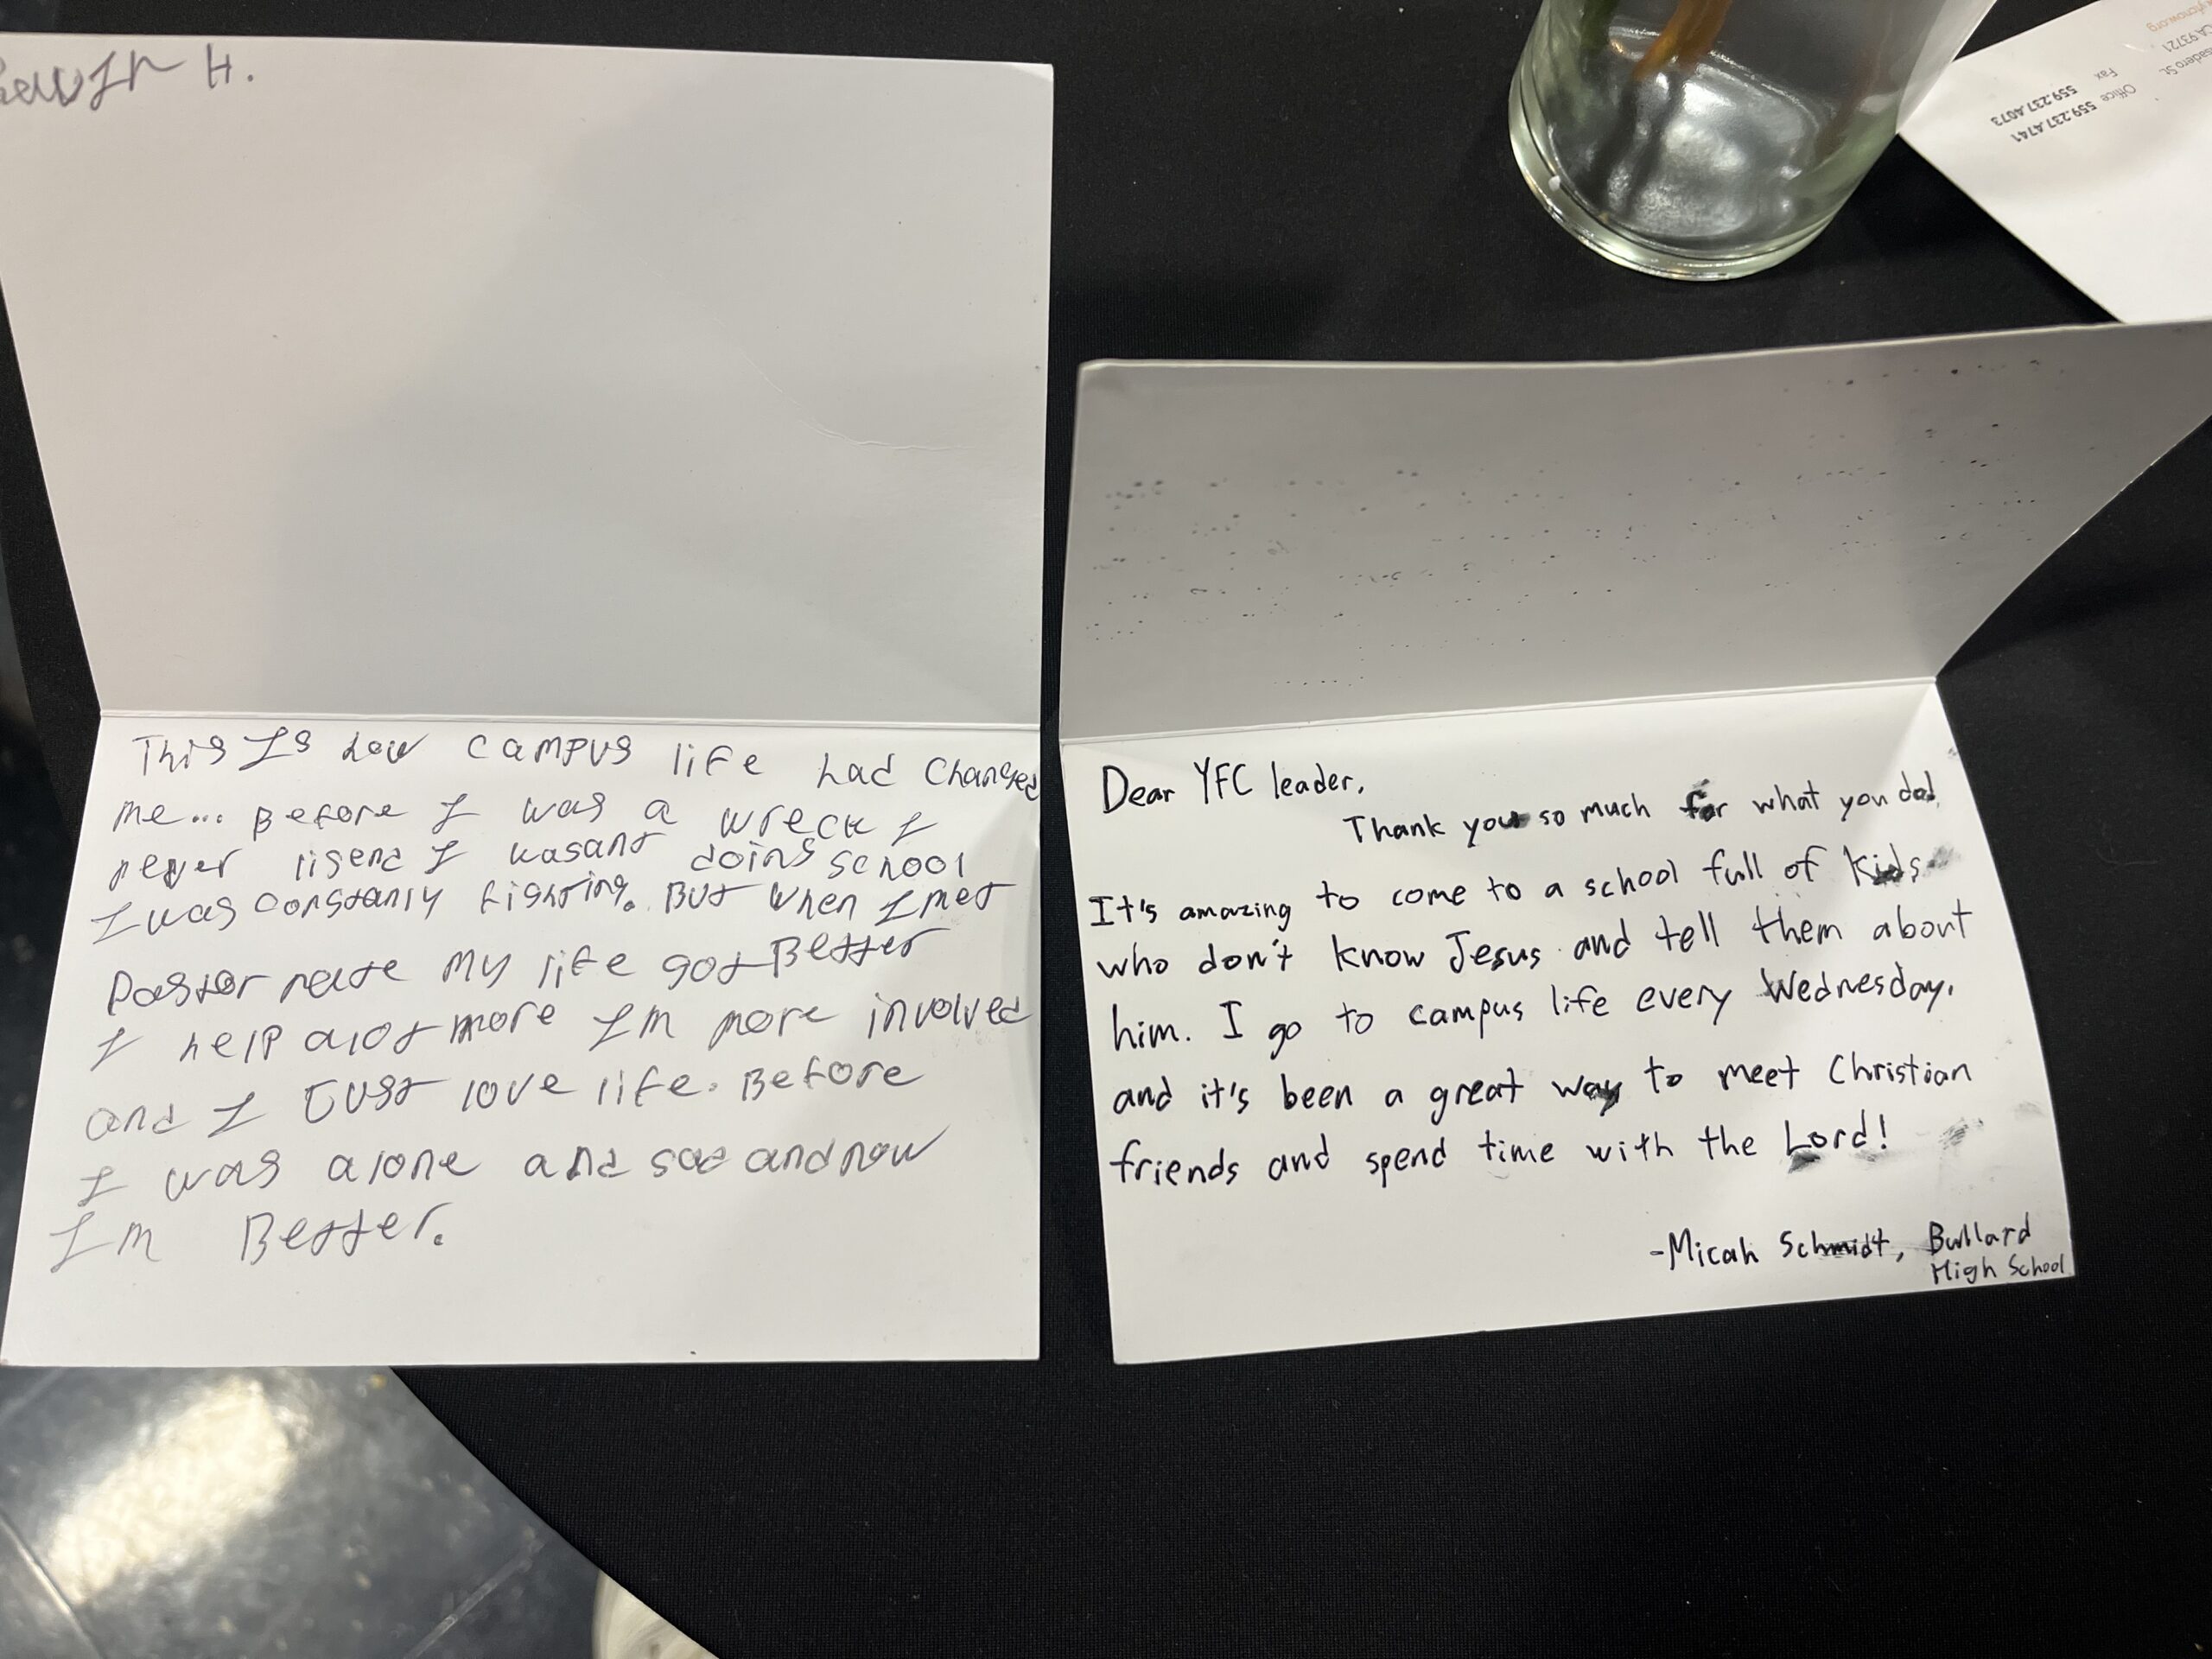 H.
This Is how campus life had Changed
me... Before I was a wreck I
never lisend I wasant doing school
I was constanly fighting. But when I met
Pastor nate My life got Better
I help alot more Im more involved
and I Just love life. Before
I was alone and sad and now
Im Better.
Dear YFC leader,
Thank you so much for what you do!
It's amazing to come to a school full of kids
who don't know Jesus and tell them about
him. I go to campus life every Wednesday,
and it's been a great way to meet Christian
friends and spend time with the Lord!
-Micah Schmidt, Bullard
High School
Office 559.237.4741
Fax 559.237.4073
CA 93721